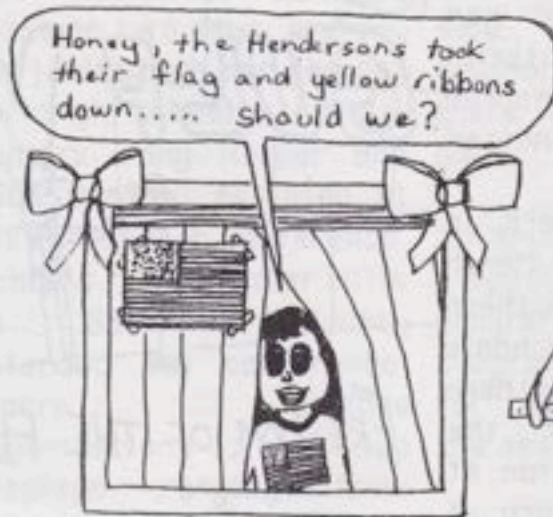 Honey, the Hendersons took
their flag and yellow ribbons
down..... should we?